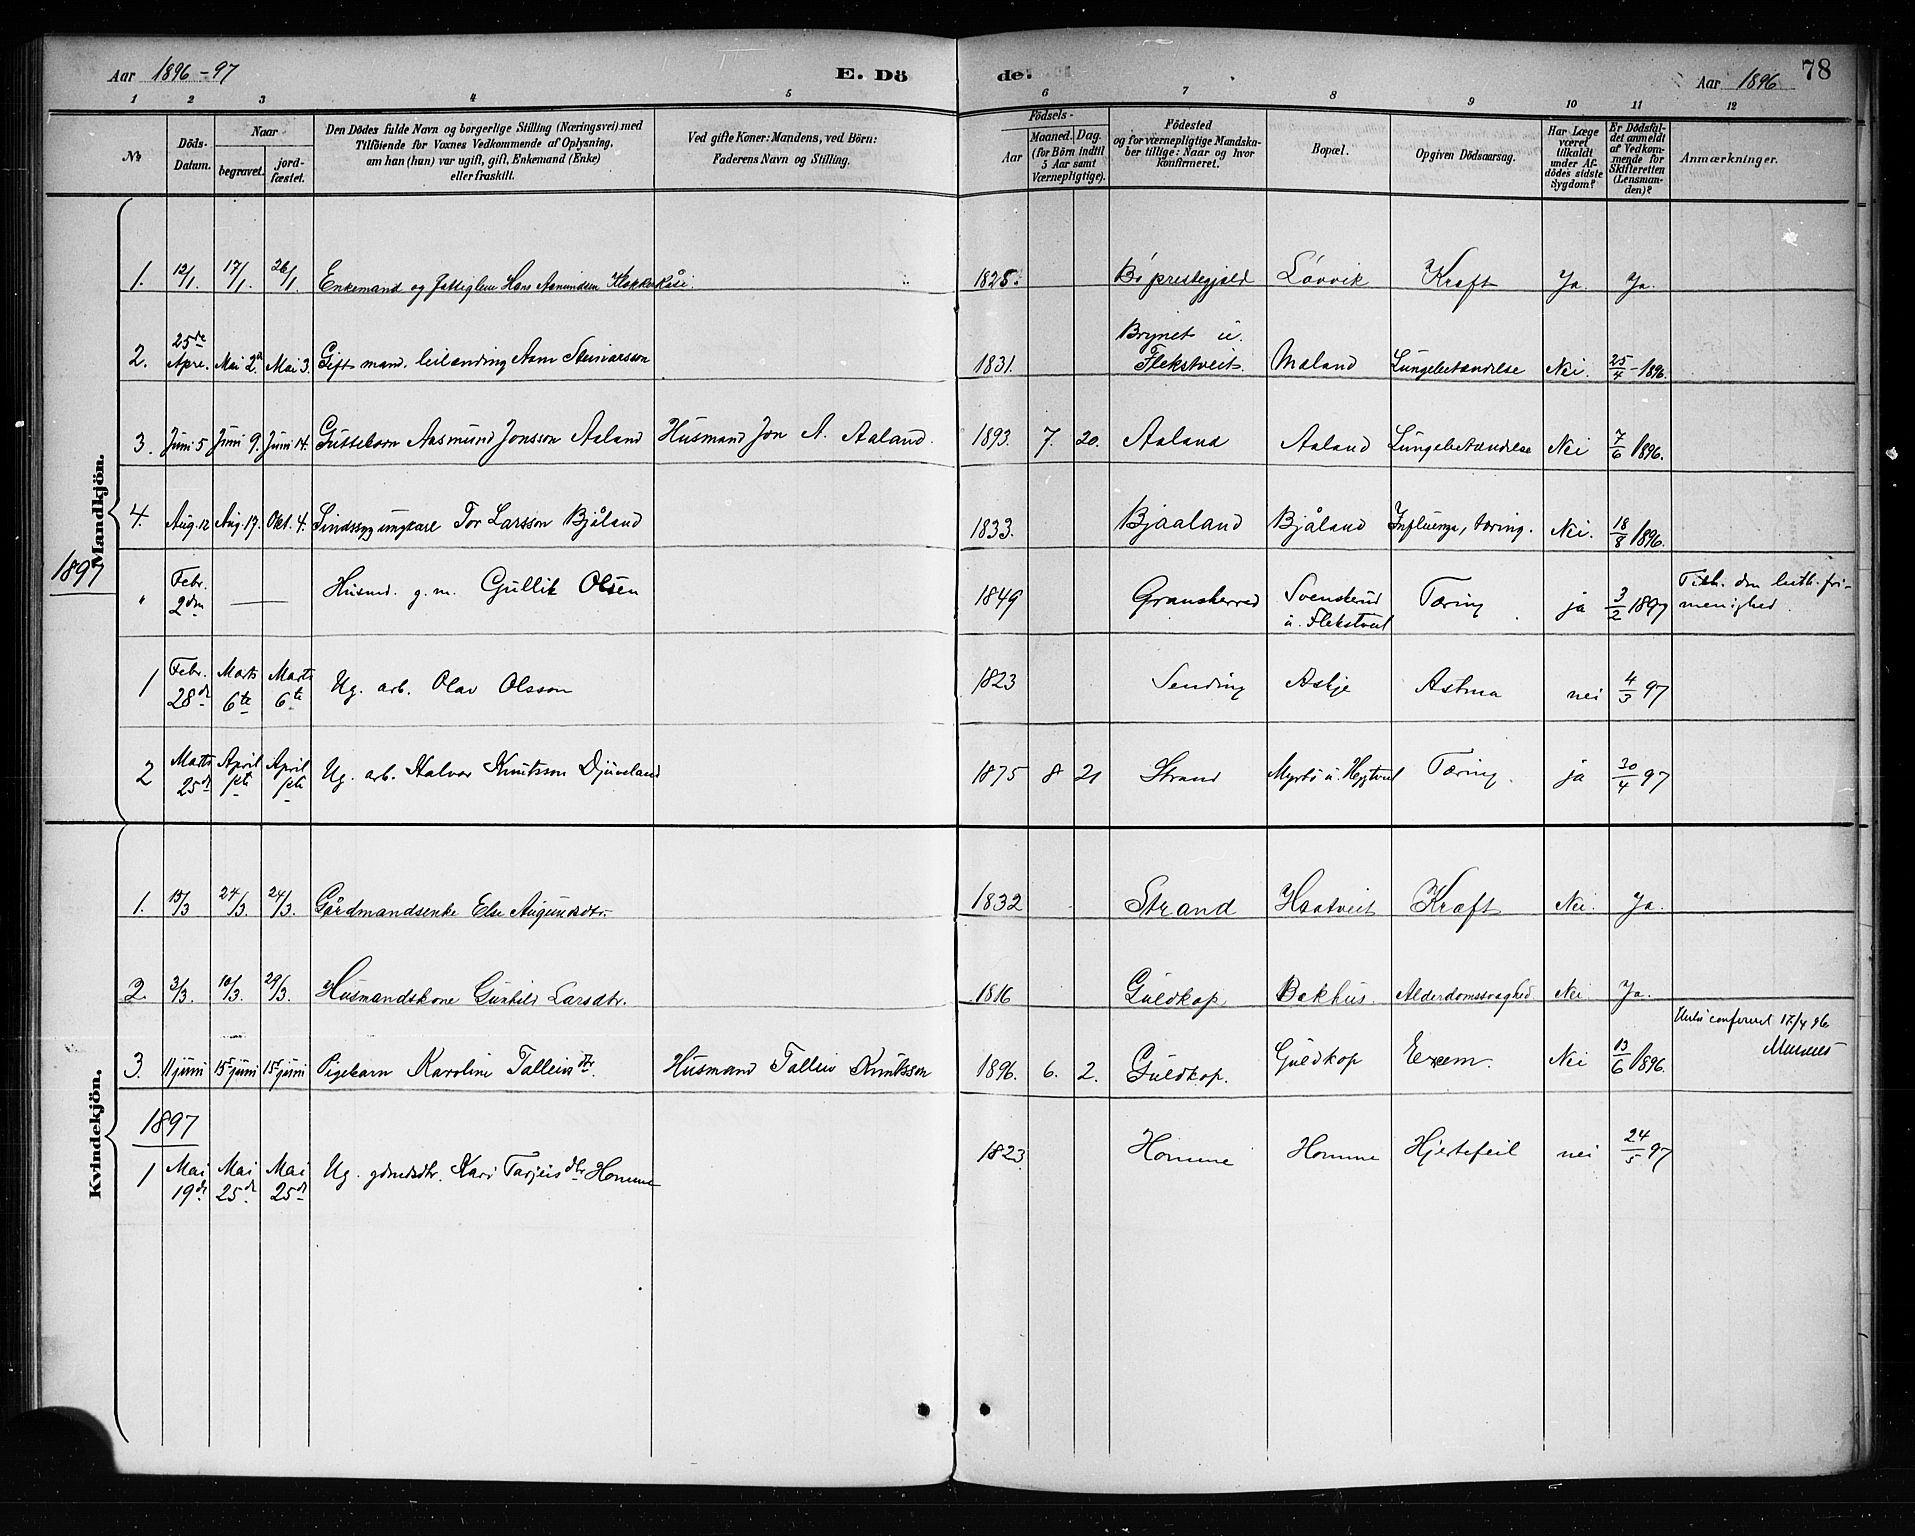 Aar 1896-97
E. Dö
de.
Aar 1896
78
1 2 3 4 5 6 7 8 9 10 11 12
No
Döds-Datum.
Naar
begravet.
jord-fæstet.
Den Dödes fulde Navn og borgerlige Stilling (Næringsvei) med
Tilföiende for Voxnes Vedkommende af Oplysning,
om han (hun) var ugift, gift, Enkemand (Enke)
eller fraskilt.
Ved gifte Koner: Mandens, ved Börn:
Faderens Navn og Stilling.
Födsels-
Aar
Maaned. Dag.
(for Börn indtil
5 Aar samt
Værnepligtige).
Födested
og for værnepligtige Mandska-
ber tillige: Naar og hvor
konfirmeret.
Bopæl.
Opgiven Dödsaarsag.
Har Læge
været
tilkaldt
under Af-
dödes sidste
Sygdom?
Er Dödsfal-
det anmeldt
af Vedkom-
mende for
Skifteretten
(Lensman-
den)?
Anmærkninger.
Mandkjön.
1. 12/1. 17/1. 26/1. Enkemand og Hans Asmundsen 1825. Bö prestegjeld Lövvik Kræft Ja Ja.
2. 25de Apr. Mai 2d Mai 3. Gift mand. leilænding Aam 1831. Brynet u. Flekstveit. Maland Lungebetændelse Nei. 25/4-1896.
3. Juni 5 Juni 9. Juni 14. Guttebarn Aasmund Jonsson Aaland Husmand Jon A. Aaland. 1893. 7. 20. Aaland Aaland Lungebetændelse Nei 7/6 1896.
4. Aug. 12 Aug. 17. Okt. 4. Sindssyg ungkare Tor Larsson Bjåland 1833. Bjaaland Bjåland Influenza, tæring. Nei. 18/8 1896.
1897
" Febr. 2den — Husmd. g. m. Gullik Olsen 1849 Gransherred Svenskerud u. Flekstveit Tæring. ja 3/2 1897 Tilh. den luth. fri-
menighed.
1 Febr. 28d Marts 6te Marts 6te Ug. arb. Olav Olsson 1823 Sending Askje Astma nei 4/3 97
2 Marts 25d April 1ste April 1ste Ug. arb. Halvor Knutsson Djuveland 1875 8 21 Strand Myrbö u. Tæring. ja 30/4 97
Kvindekjön.
1. 15/3 24/3. 24/3. Gårdmandsenke Else Augundsdtr. 1832 Strand Haatveit Kræft Nei. Ja.
2. 3/3. 10/3. 29/3. Husmandskone Gunhild Larsdtr. 1816 Guldkop Bakhus. Alderdomssvaghed Nei Ja.
confereret 17/4 96
3. 11 juni 15 juni 15 juni Pigebarn Karoline Talleivsdtr. Husmand Talleiv Knutsson 1896. 6. 2. Guldkop. Guldkop Exem. Nei 13/6 1896.
1897
1 Mai 19de Mai 25d Mai 25d Ug. gdmdsdtr. Kari Tarjeisdtr Homme 1823. Homme Homme Hjertefeil nei 24/5 97